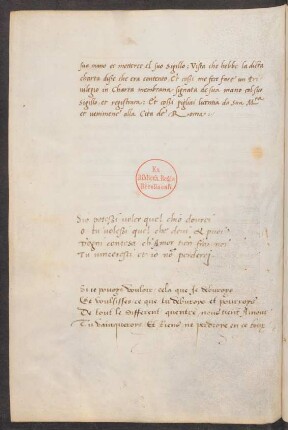 sua mano et mettere el suo sigillo; Vista che hebbe la dicta
charta disse che era contento Et cosi me fece fare un Pri
vilegio in Charta membrana, signata de sua mano col suo
sigillo, et registrata; Et cosi pigliai licentia da sua M.ta
et veninene alla Cità de Roma
Ex
Biblioth. Regia
Berolinensi
Sio potessi voler quel chio dovrei
o tu volessi quel che devi, et puoi
D'ogni contrasto ch'Amor
Tu vinceresti et io nõ perderei
Si ie pouoys vouloir cela que ie deburoys
Et voulsisses ce que tu deburoys et pourroys
De tout le different quentre nous tient Amour
Tu vainqueroys Et Riens ne perdroye en ce tour